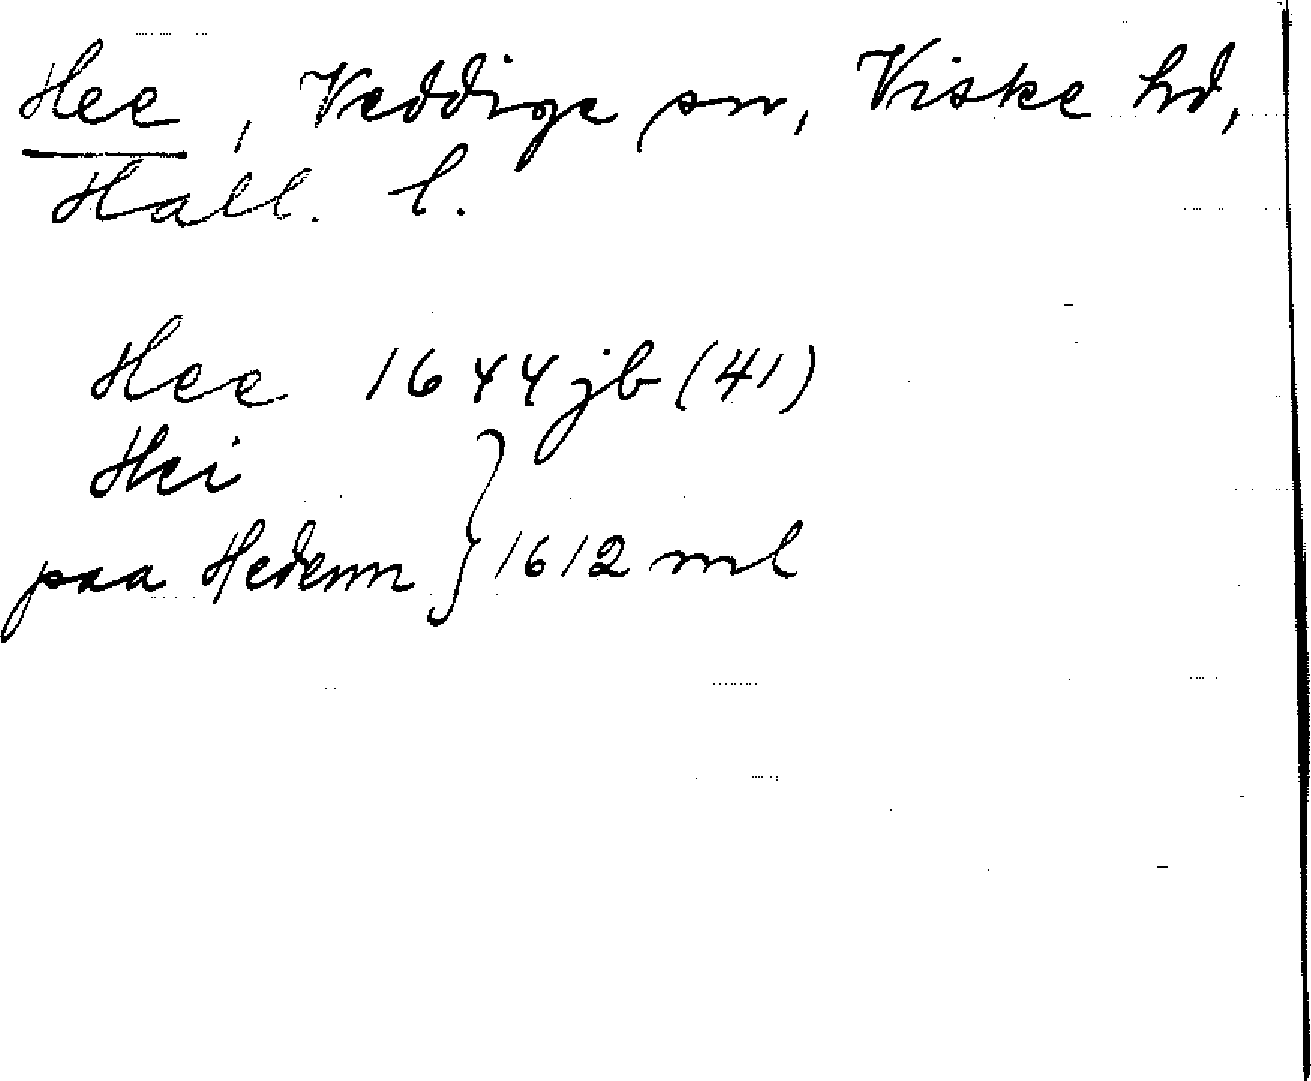 Hee, Veddige sn, Viske hd,
Hall. l.
Hee 1644 jb (41)
Hei
paa Hedenn } 1612 ml